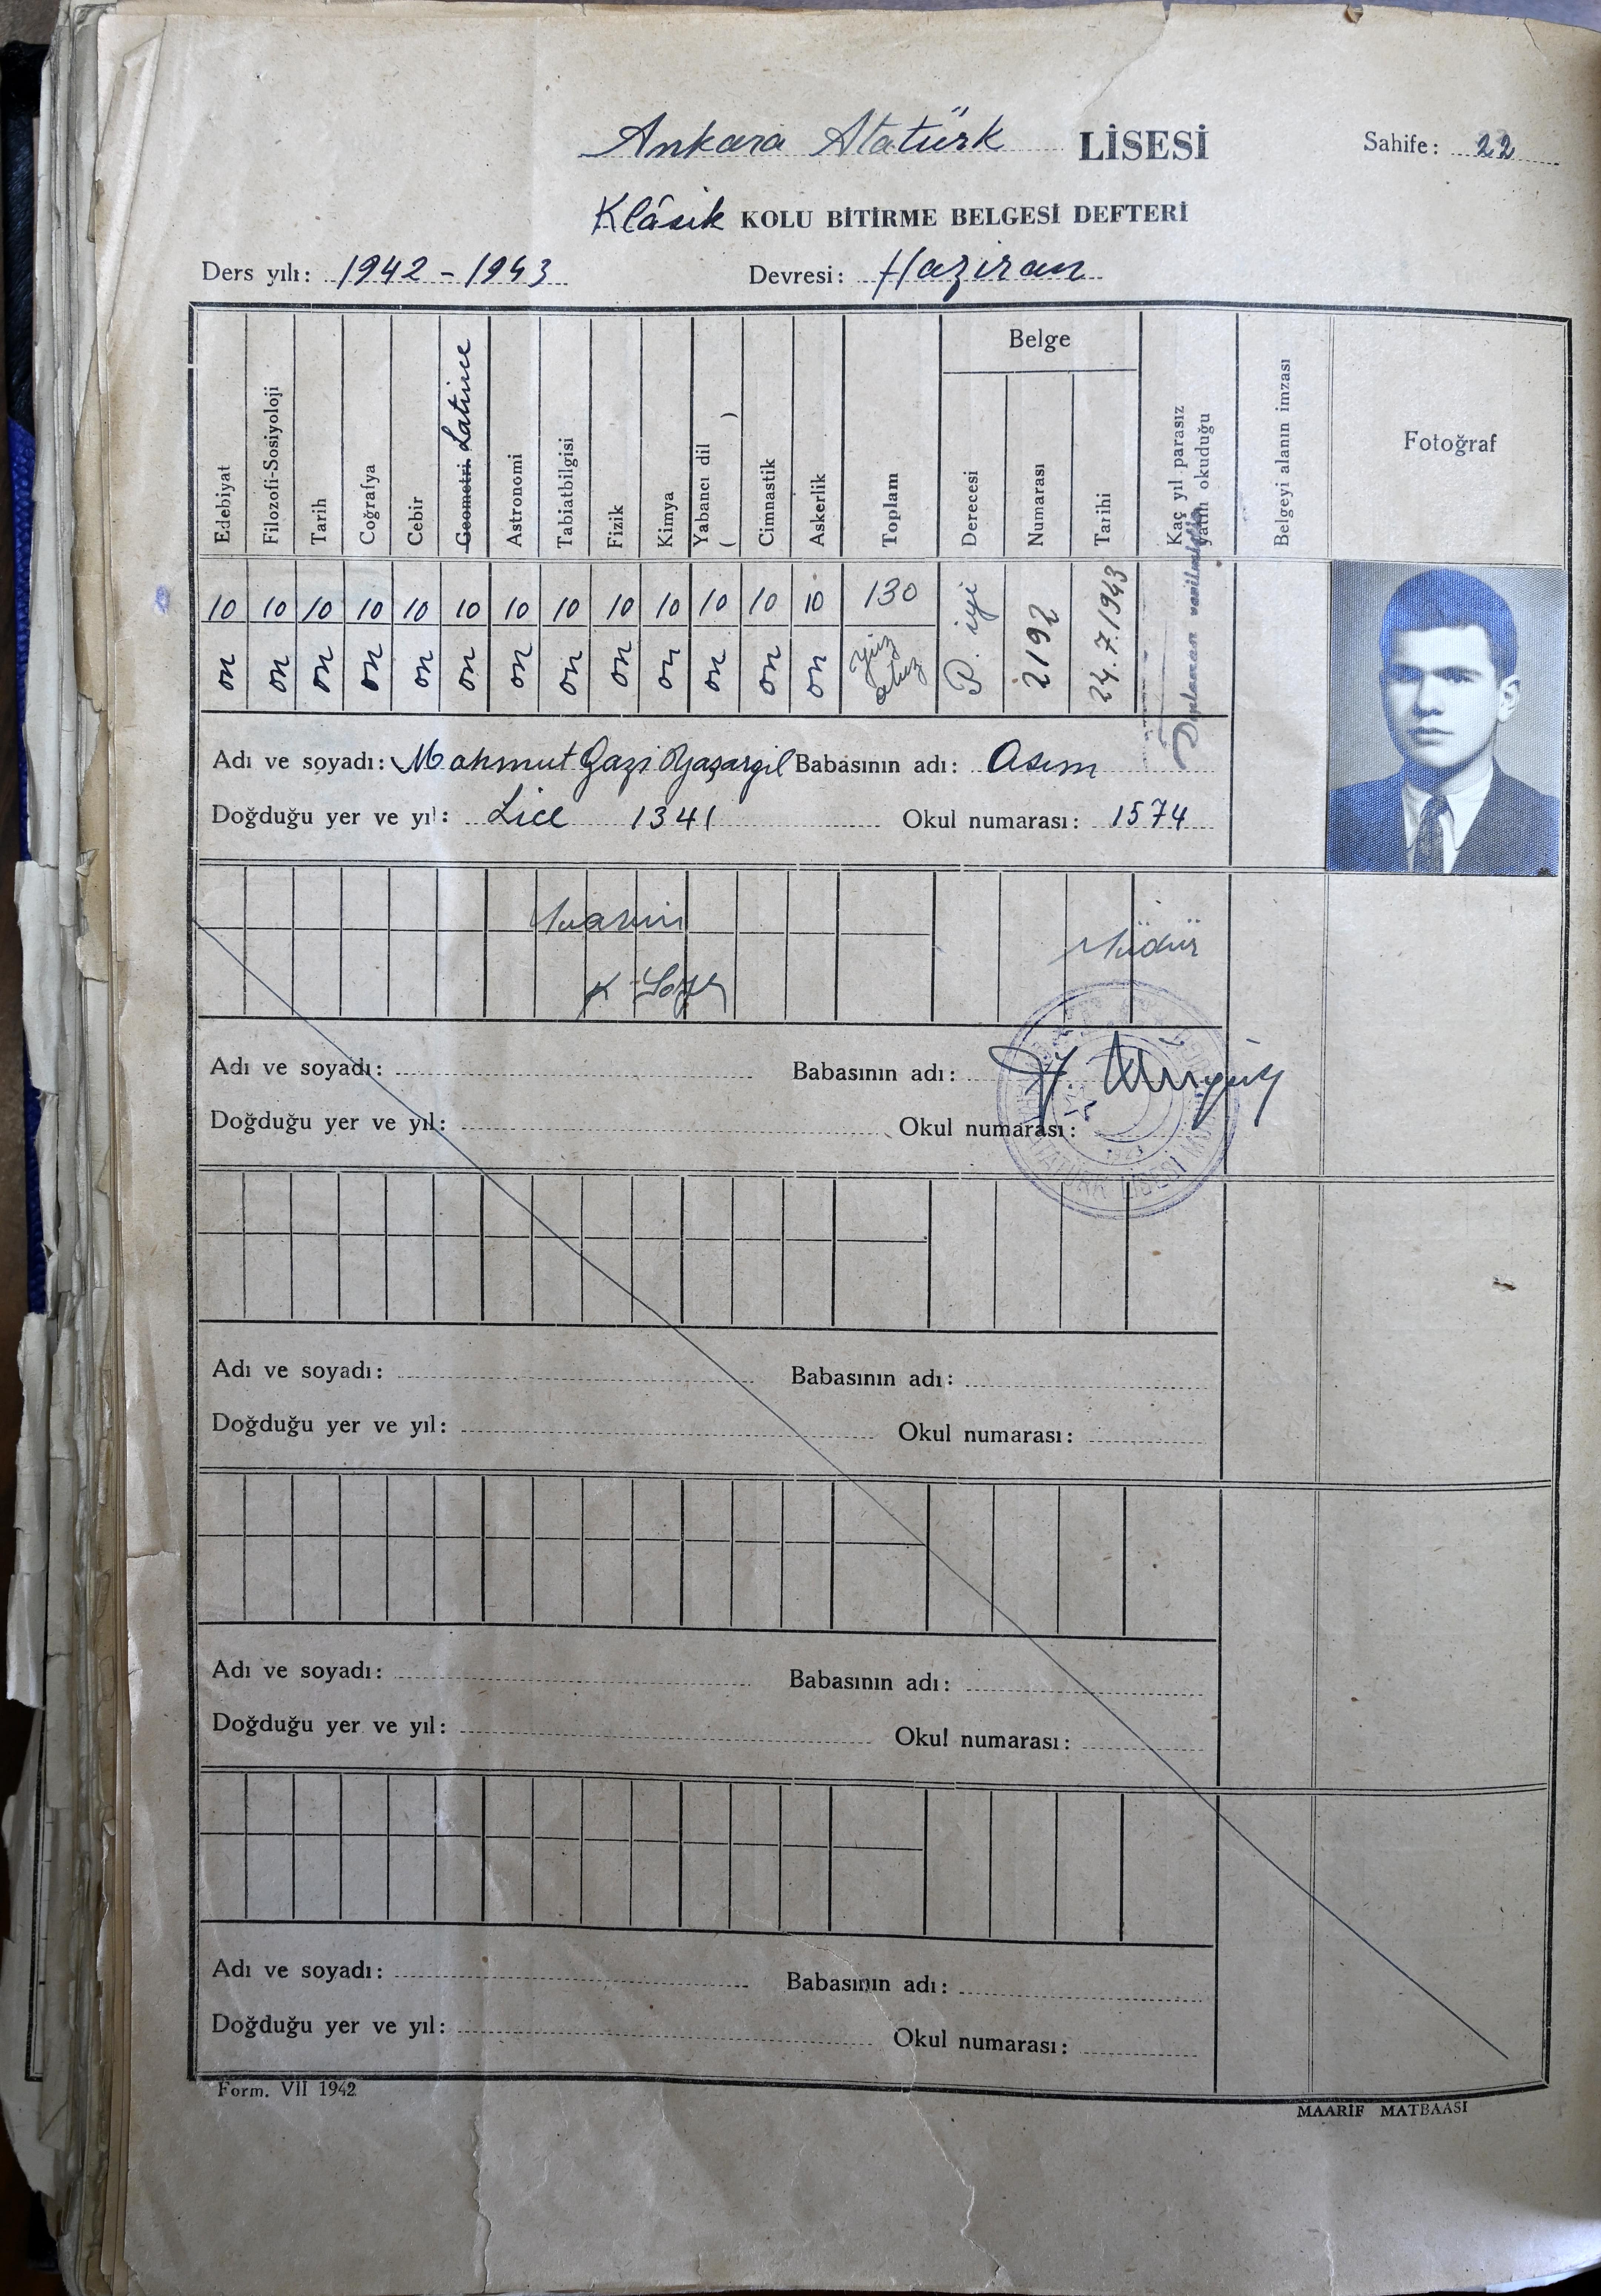 Ankara Atatürk LİSESİ
Sahife: 22
Klâsik KOLU BİTİRME BELGESİ DEFTERİ
Ders yılı: 1942-1943 Devresi: Haziran
Edebiyat
Filozofi-Sosiyoloji
Tarih
Coğrafya
Cebir
Geometri Latince
Astronomi
Tabiatbilgisi
Fizik
Kimya
Yabancı dil
( )
Cimnastik
Askerlik
Toplam
Belge
Derecesi
Numarası
Tarihi
Kaç yıl parasız
yatılı okuduğu
Belgeyi alanın imzası
Fotoğraf
10 10 10 10 10 10 10 10 10 10 10 10 10 130
on on on on on on on on on on on on on yüz otuz
P. iyi
2192
24.7.1943
Adı ve soyadı: Mahmut Gazi Yaşargil Babasının adı: Asım
Doğduğu yer ve yıl: Lice 1341 Okul numarası: 1574
Müdür
Adı ve soyadı: Babasının adı:
Doğduğu yer ve yıl: Okul numarası:
ATATÜRK LİSESİ
Adı ve soyadı: Babasının adı:
Doğduğu yer ve yıl: Okul numarası:
Adı ve soyadı: Babasının adı:
Doğduğu yer ve yıl: Okul numarası:
Adı ve soyadı: Babasının adı:
Doğduğu yer ve yıl: Okul numarası:
Form. VII 1942
MAARİF MATBAASI